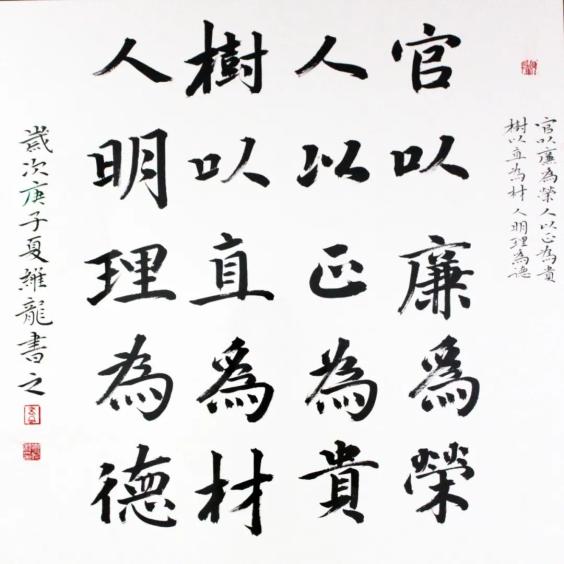 官以廉為榮人以正為貴
樹以直為材人明理為德
官以廉為榮
人以正為貴
樹以直為材
人明理為德
歲次庚子夏維龍書之